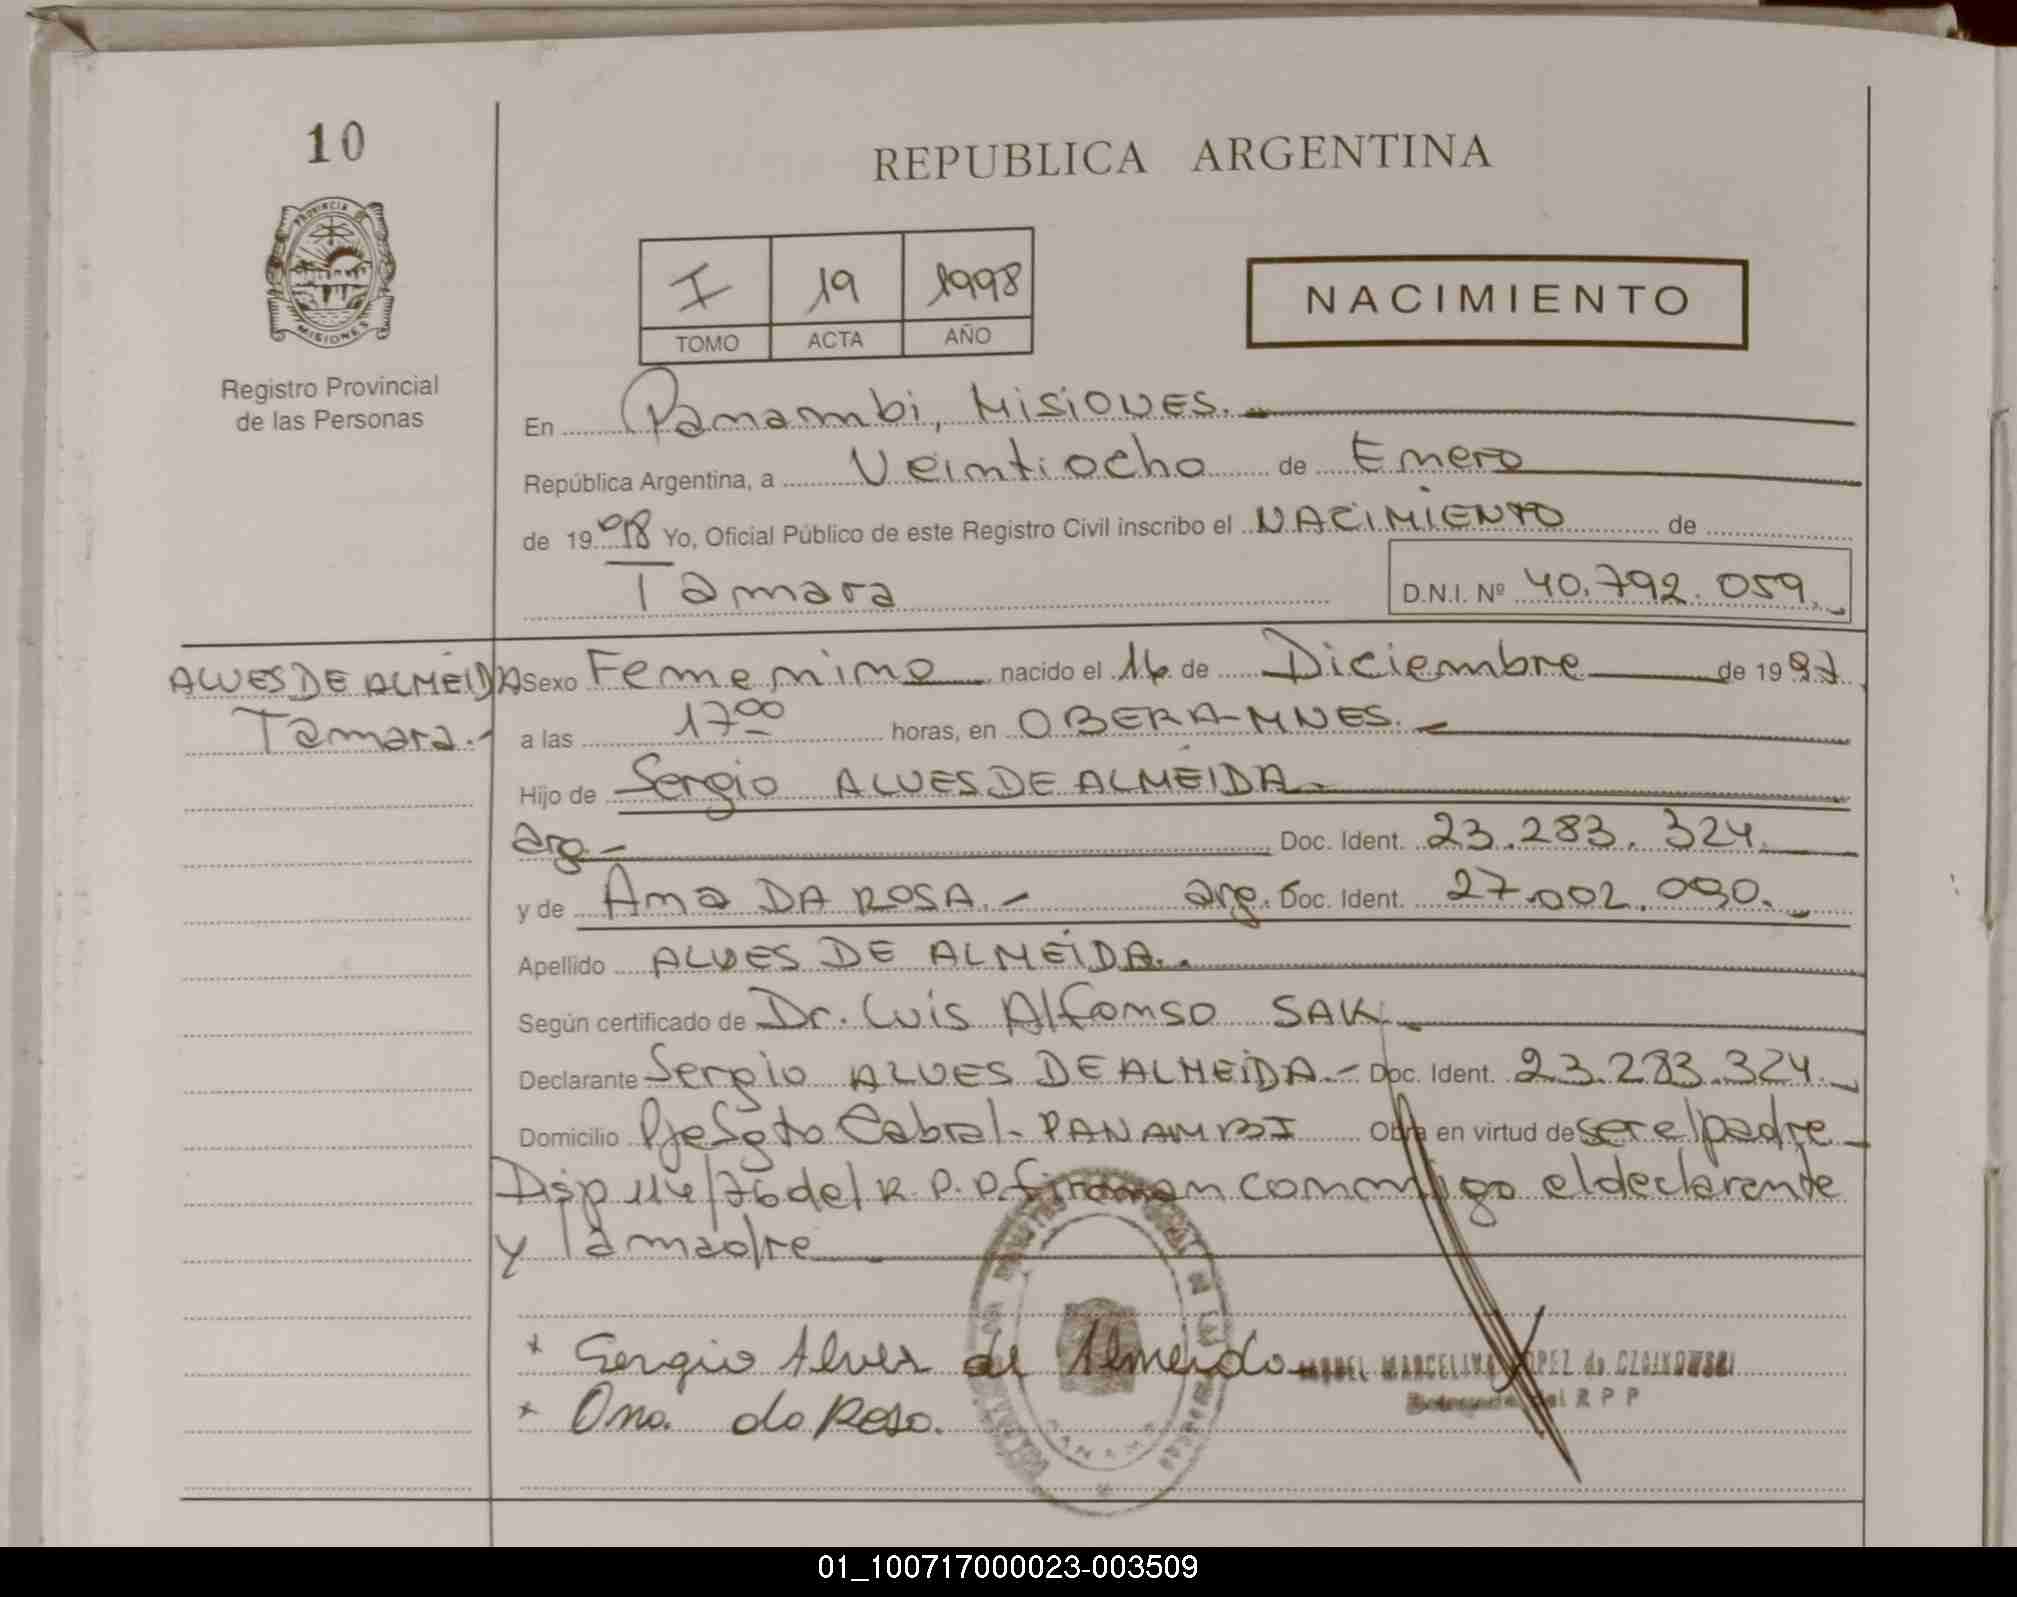 10
REPUBLICA ARGENTINA
PROVINCIA DE
MISIONES
Registro Provincial
de las Personas
I 19 1998
TOMO ACTA AÑO
NACIMIENTO
En Panambi, MISIONES.
República Argentina, a Veintiocho de Enero
de 1998 Yo, Oficial Público de este Registro Civil inscribo el NACIMIENTO de
Tamara D.N.I. Nº 40.792.059.
ALVES DE ALMEIDA Sexo Femenino nacido el 16 de Diciembre de 1997
Tamara.- a las 17 00 horas, en OBERA-MNES.
Hijo de Sergio ALVES DE ALMEIDA-
arg.- Doc. Ident. 23.283.324.
y de Ana DA ROSA.- arg. Doc. Ident. 27.002.090.
Apellido ALVES DE ALMEIDA.
Según certificado de Dr. Luis Alfonso SAK.
Declarante Sergio ALVES DE ALMEIDA.- Doc. Ident. 23.283.324.
Domicilio Pje Sgto Cabral- PANAMBI Obra en virtud de ser el padre
Disp 114/76 del R.P.P. firman conmigo el declarante
y la madre
* Sergio Alves de Almeida
MARCELINA LOPEZ de CZAJKOWSKI
del R P P
* Ana da Rosa.
01_100717000023-003509